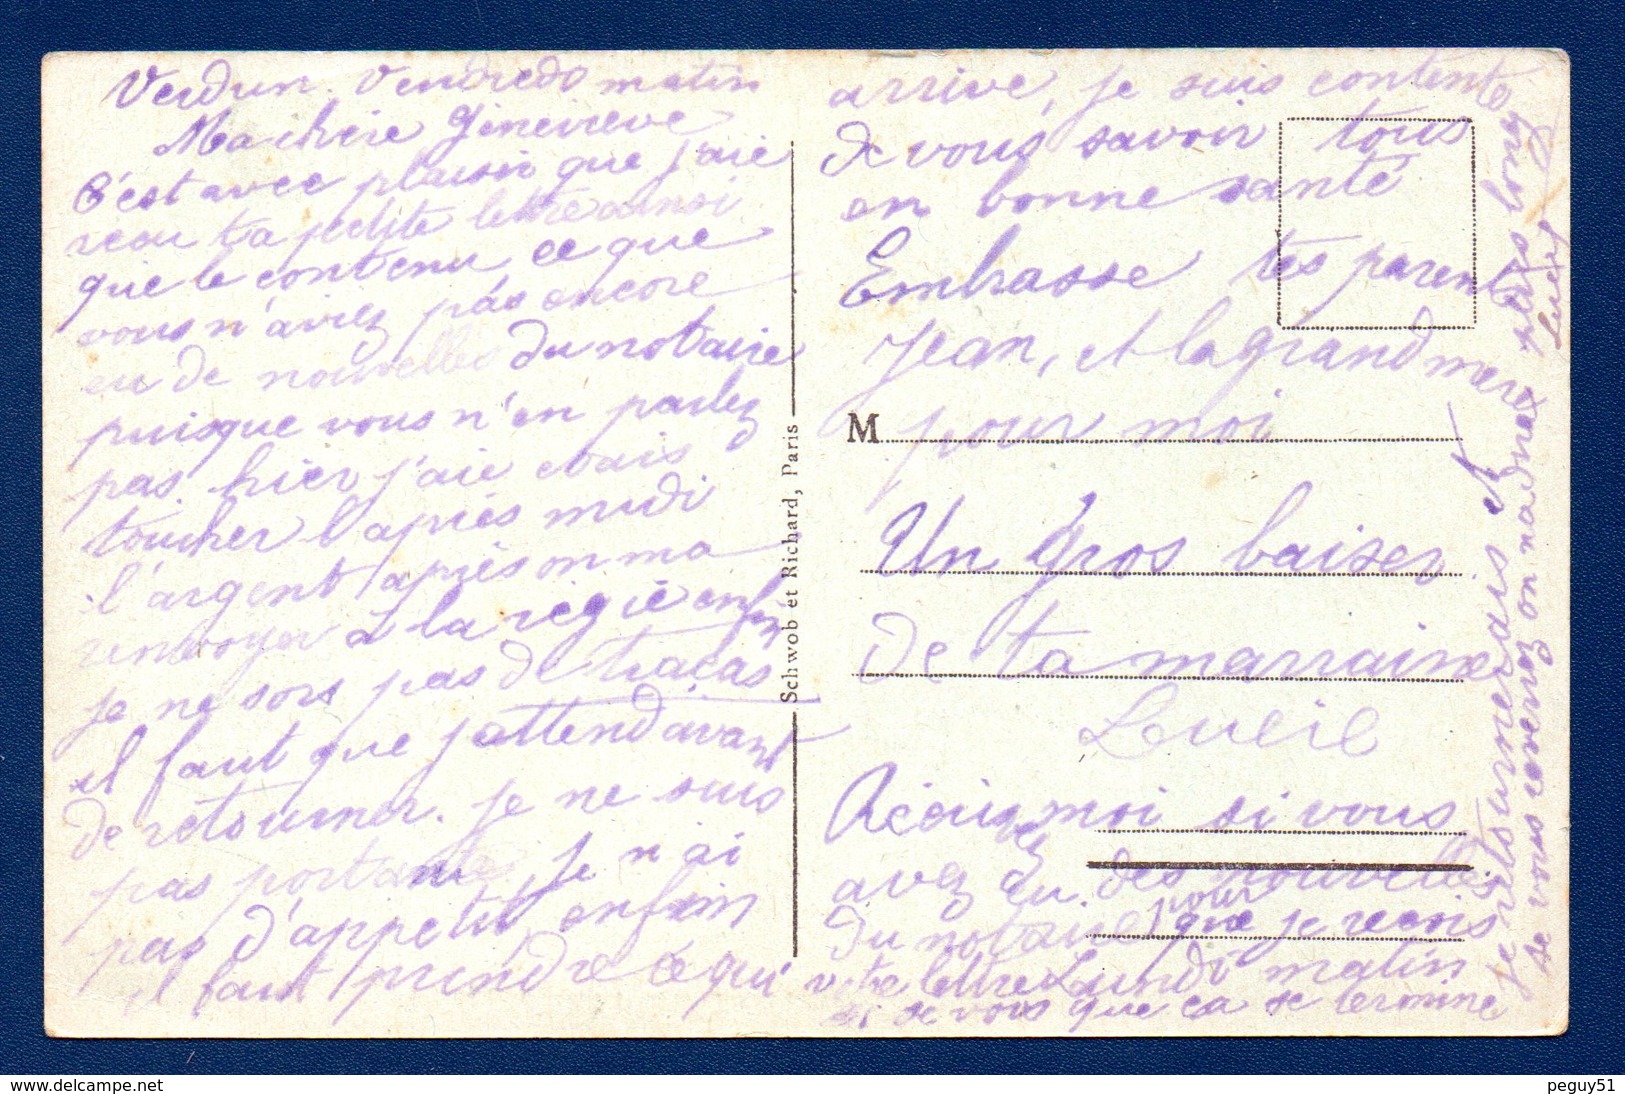 Verdun. Vendredo matin
Ma chère Geneviève
C'est avec plaisir que j'aie
recu ta petite lettre ainsi
que le contenu ce que
vous n'aviez pas encore
eu de nouvelles du notaire
puisque vous n'en parlez
pas. hier j'aie etais
toucher l'après midi
l'argent après on ma
renvoyer a la régie enfin
je ne sors pas de tracas
il faut que j'attend avant
de retourner. je ne suis
pas portante je n'ai
pas d'appetit enfin
il faut prendre ce qui
arrive, je suis contente
de vous savoir tous
en bonne santé
Embrasse tes parents
Jean, et la grand mere
pour moi
Un gros baiser
de ta marraine
Lucie
Récris moi si vous
avez eu des nouvelles
du notaire pour que je recois
votre lettre Lundi matin
si je vois que ca se termine
je retournerais
de vous envoyer on
plus long
Lucie
M
Schwob et Richard, Paris
peguy51